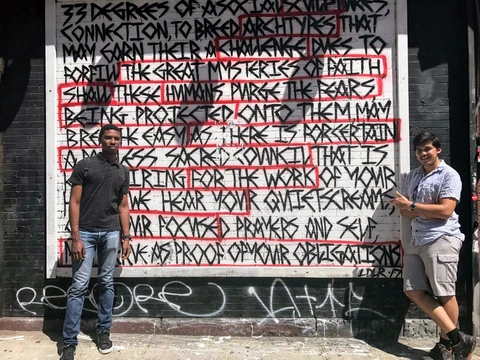 33 DEGREES OF ASOCIAL SCULPTURES,
CONNECTION, TO BREED ARCHTYPES THAT
MAY EARN THEIR A CHALLENGE DUES TO
THE GREAT MYSTERIES OF FAITH
SHOW THESE HUMANS PURGE THE FEARS
BEING PROJECTED ONTO THEM MAY
BREATHE EASY AS THERE IS FOR CERTAIN
A SACRED COUNCIL THAT IS
FOR THE WORK OF YOUR
WE HEAR YOUR QUIET SCREAMS,
YOUR FOCUSED PRAYERS AND SELF,
AS PROOF OF YOUR OBLIGATIONS